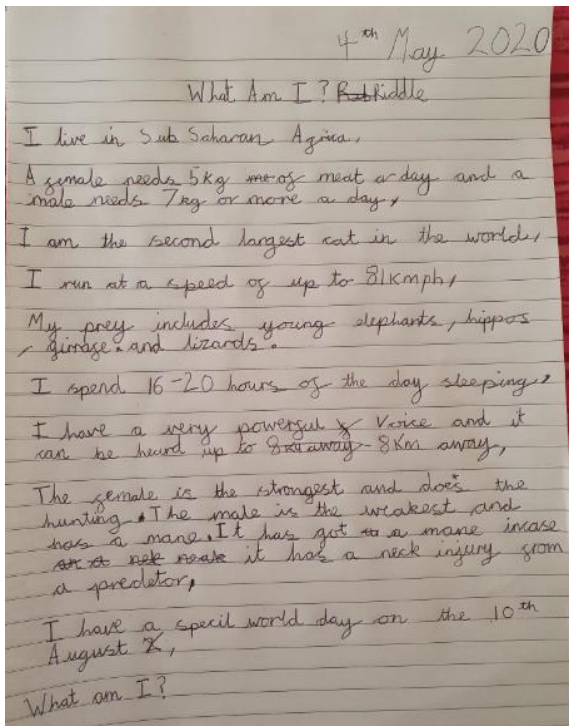 4th May 2020
What Am I? Riddle
I live in Sub Saharan Africa,
A female needs 5kg of meat a day and a
male needs 7kg or more a day,
I am the second largest cat in the world,
I run at a speed of up to 81kmph,
My prey includes young elephants, hippos
, girrafe. and lizards.
I spend 16-20 hours of the day sleeping,
I have a very powerful voice and it
can be heard up to 8km away,
The female is the strongest and does the
hunting. The male is the weakest and
has a mane. It has got a mane incase
it has a neck injury from
a predetor,
I have a specil world day on the 10th
August,
What am I?